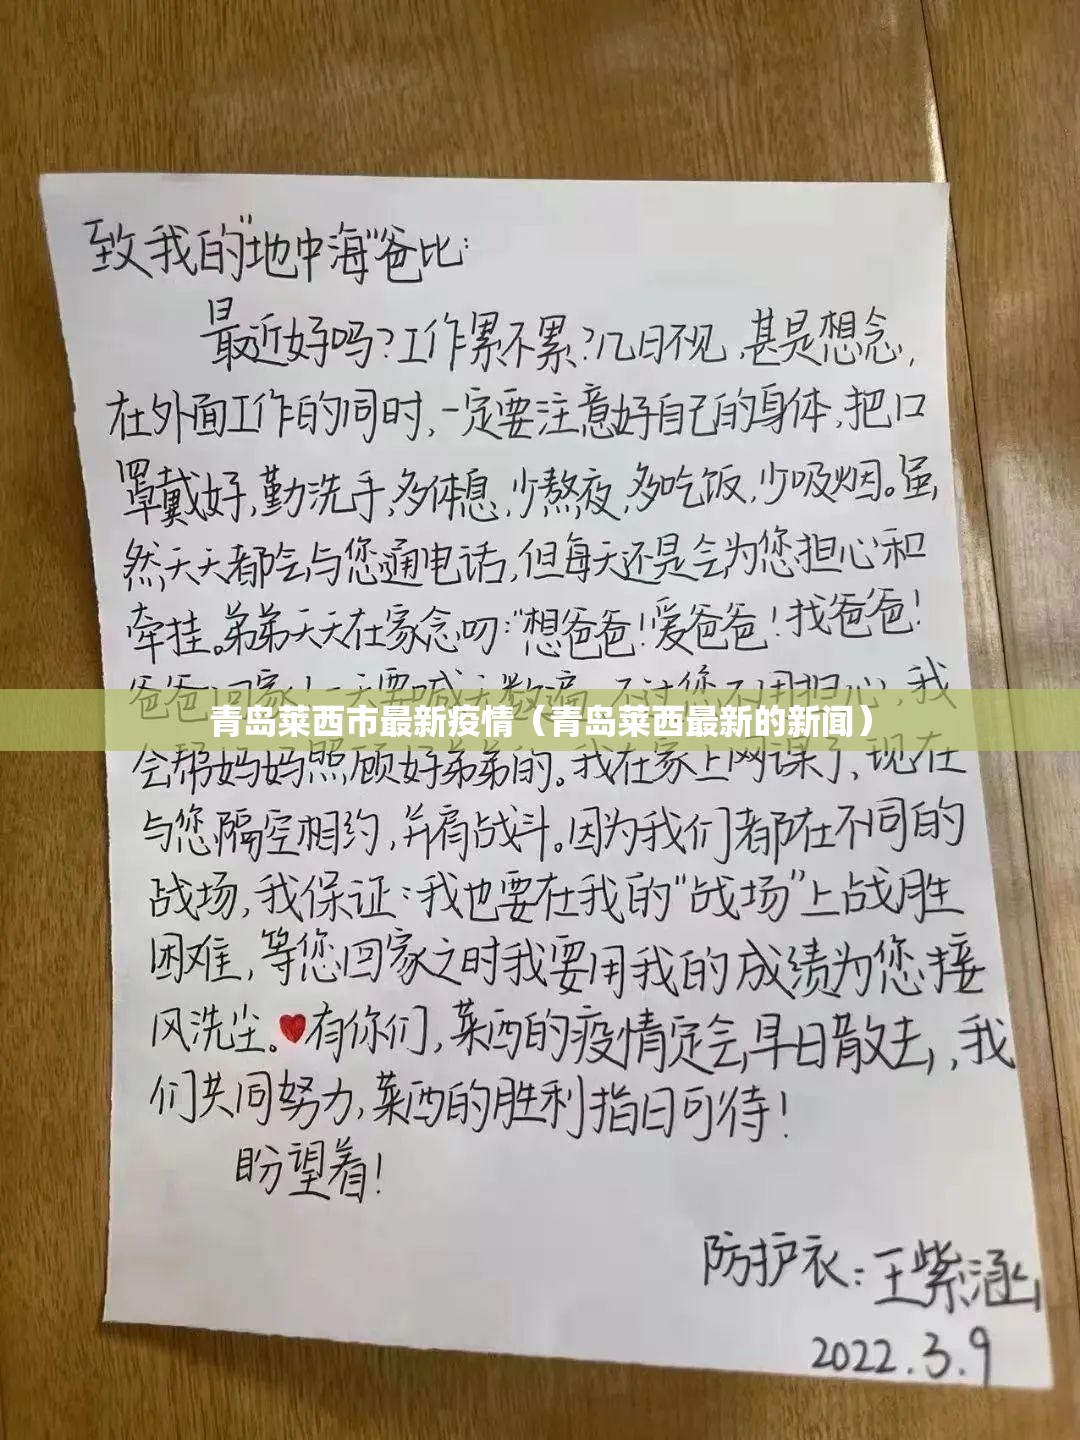 致我的"地中海"爸比:
最近好吗?工作累不累?几日不见,甚是想念,
在外面工作的同时,一定要注意好自己的身体,把口
罩戴好,勤洗手,多休息,少熬夜,多吃饭,少吸烟。虽
然,天天都会与您通电话,但每天还是会为您担心和
牵挂。弟弟天天在家念叨:"想爸爸!爱爸爸!找爸爸!
爸爸回家!一天要喊无数遍,不过您不用担心,我
青岛莱西市最新疫情（青岛莱西最新的新闻）
会帮妈妈照顾好弟弟的。我在家上网课了,现在
与您隔空相约,并肩战斗。因为我们都在不同的
战场,我保证:我也要在我的"战场"上战胜
困难,等您回家之时我要用我的成绩为您接
风洗尘。❤有你们,莱西的疫情定会早日散去,我
们共同努力,莱西的胜利指日可待!
盼望着!
防护衣:王紫涵
2022.3.9